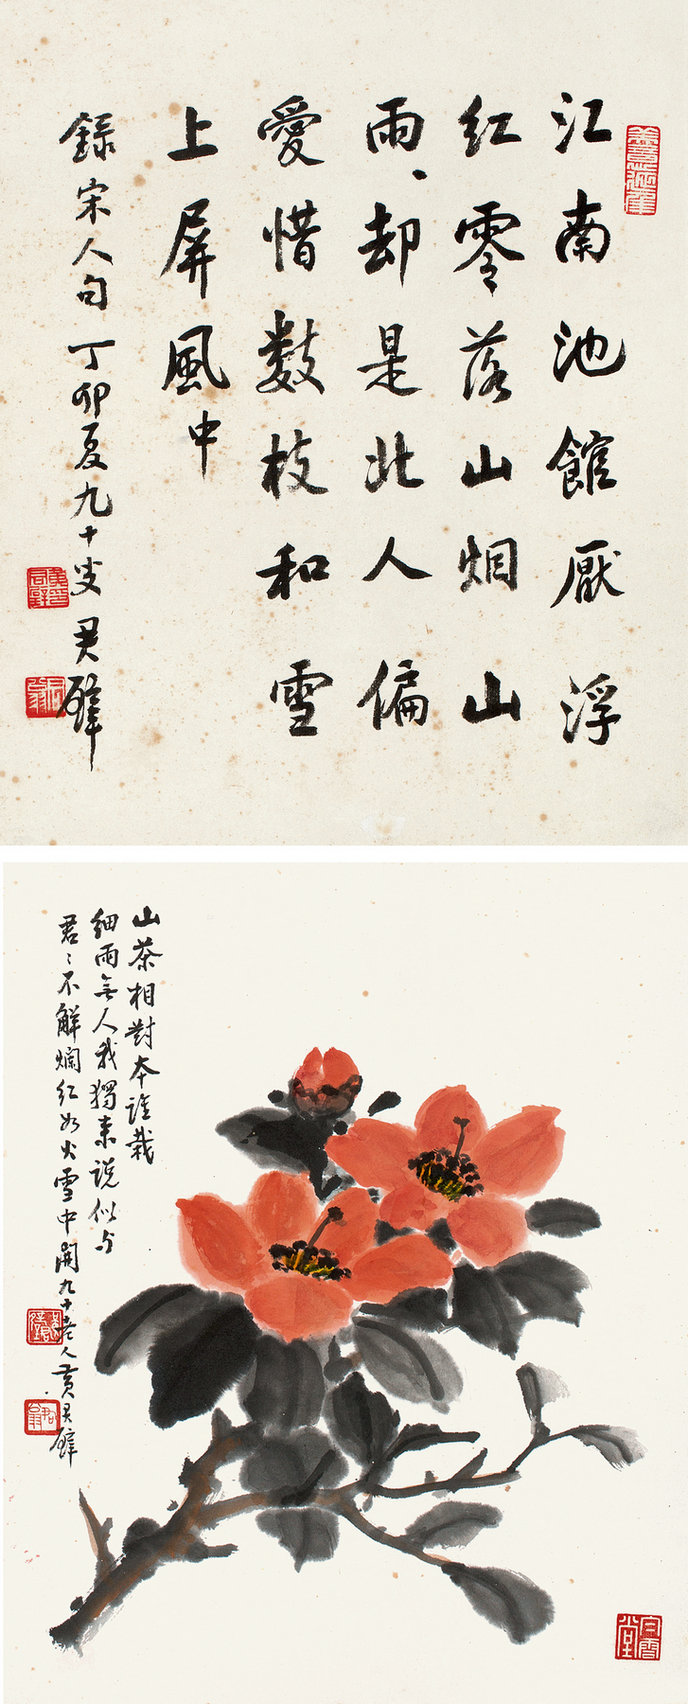 江南池館厭浮
红零落山烟山
雨、却是北人偏
愛惜数枝和雪
上屏風中
録宋人句丁卯夏九十叟君璧
山茶相對本誰栽
細雨無人我獨来說似与
君君不解爛红如火雪中開九十老人黄君璧